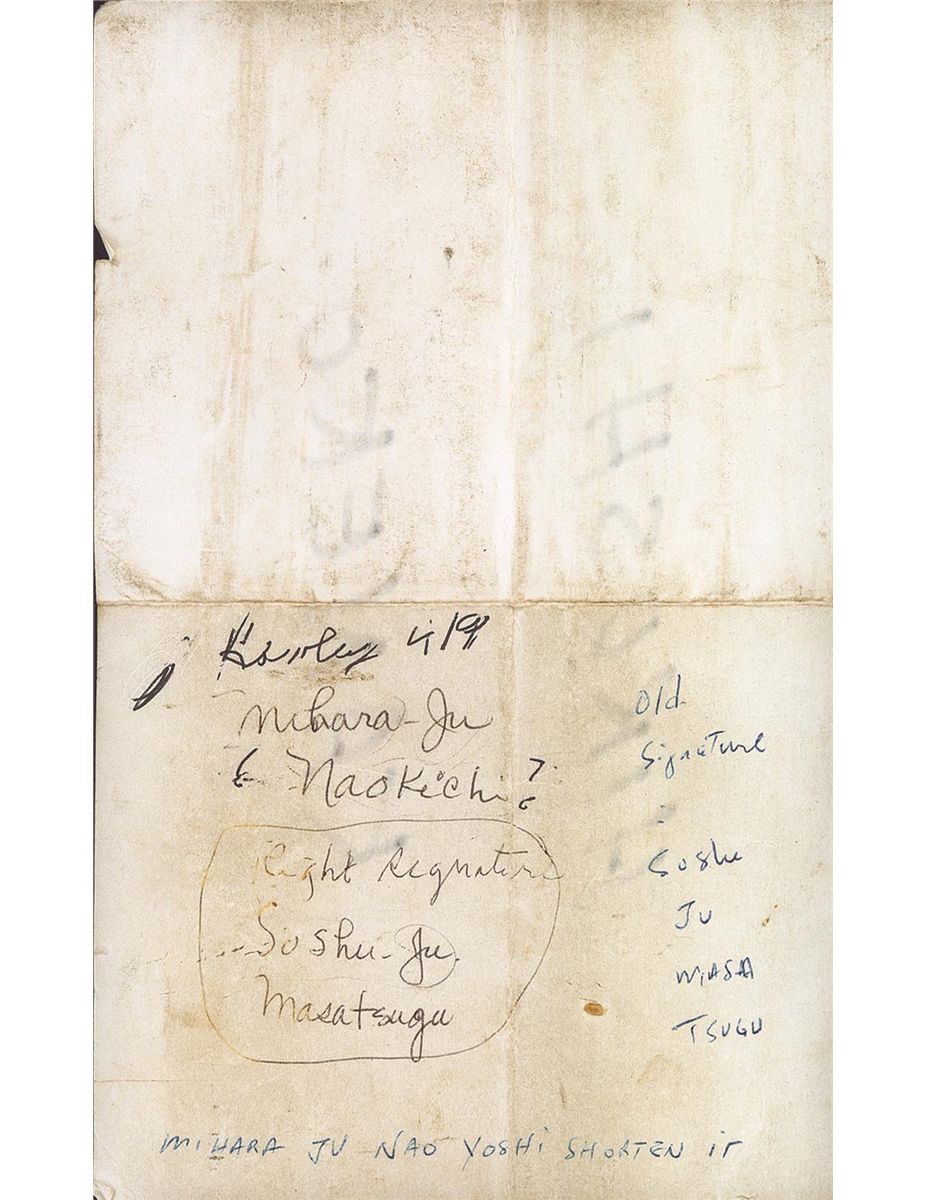 Hawley 419
Mihara-Ju
& Naokichi?
Right Signature
Soshu-Ju
Masatsugu
Old
Signature
Soshu
Ju
MASA
TSUGU
MIHARA JU NAO YOSHI SHORTEN IT